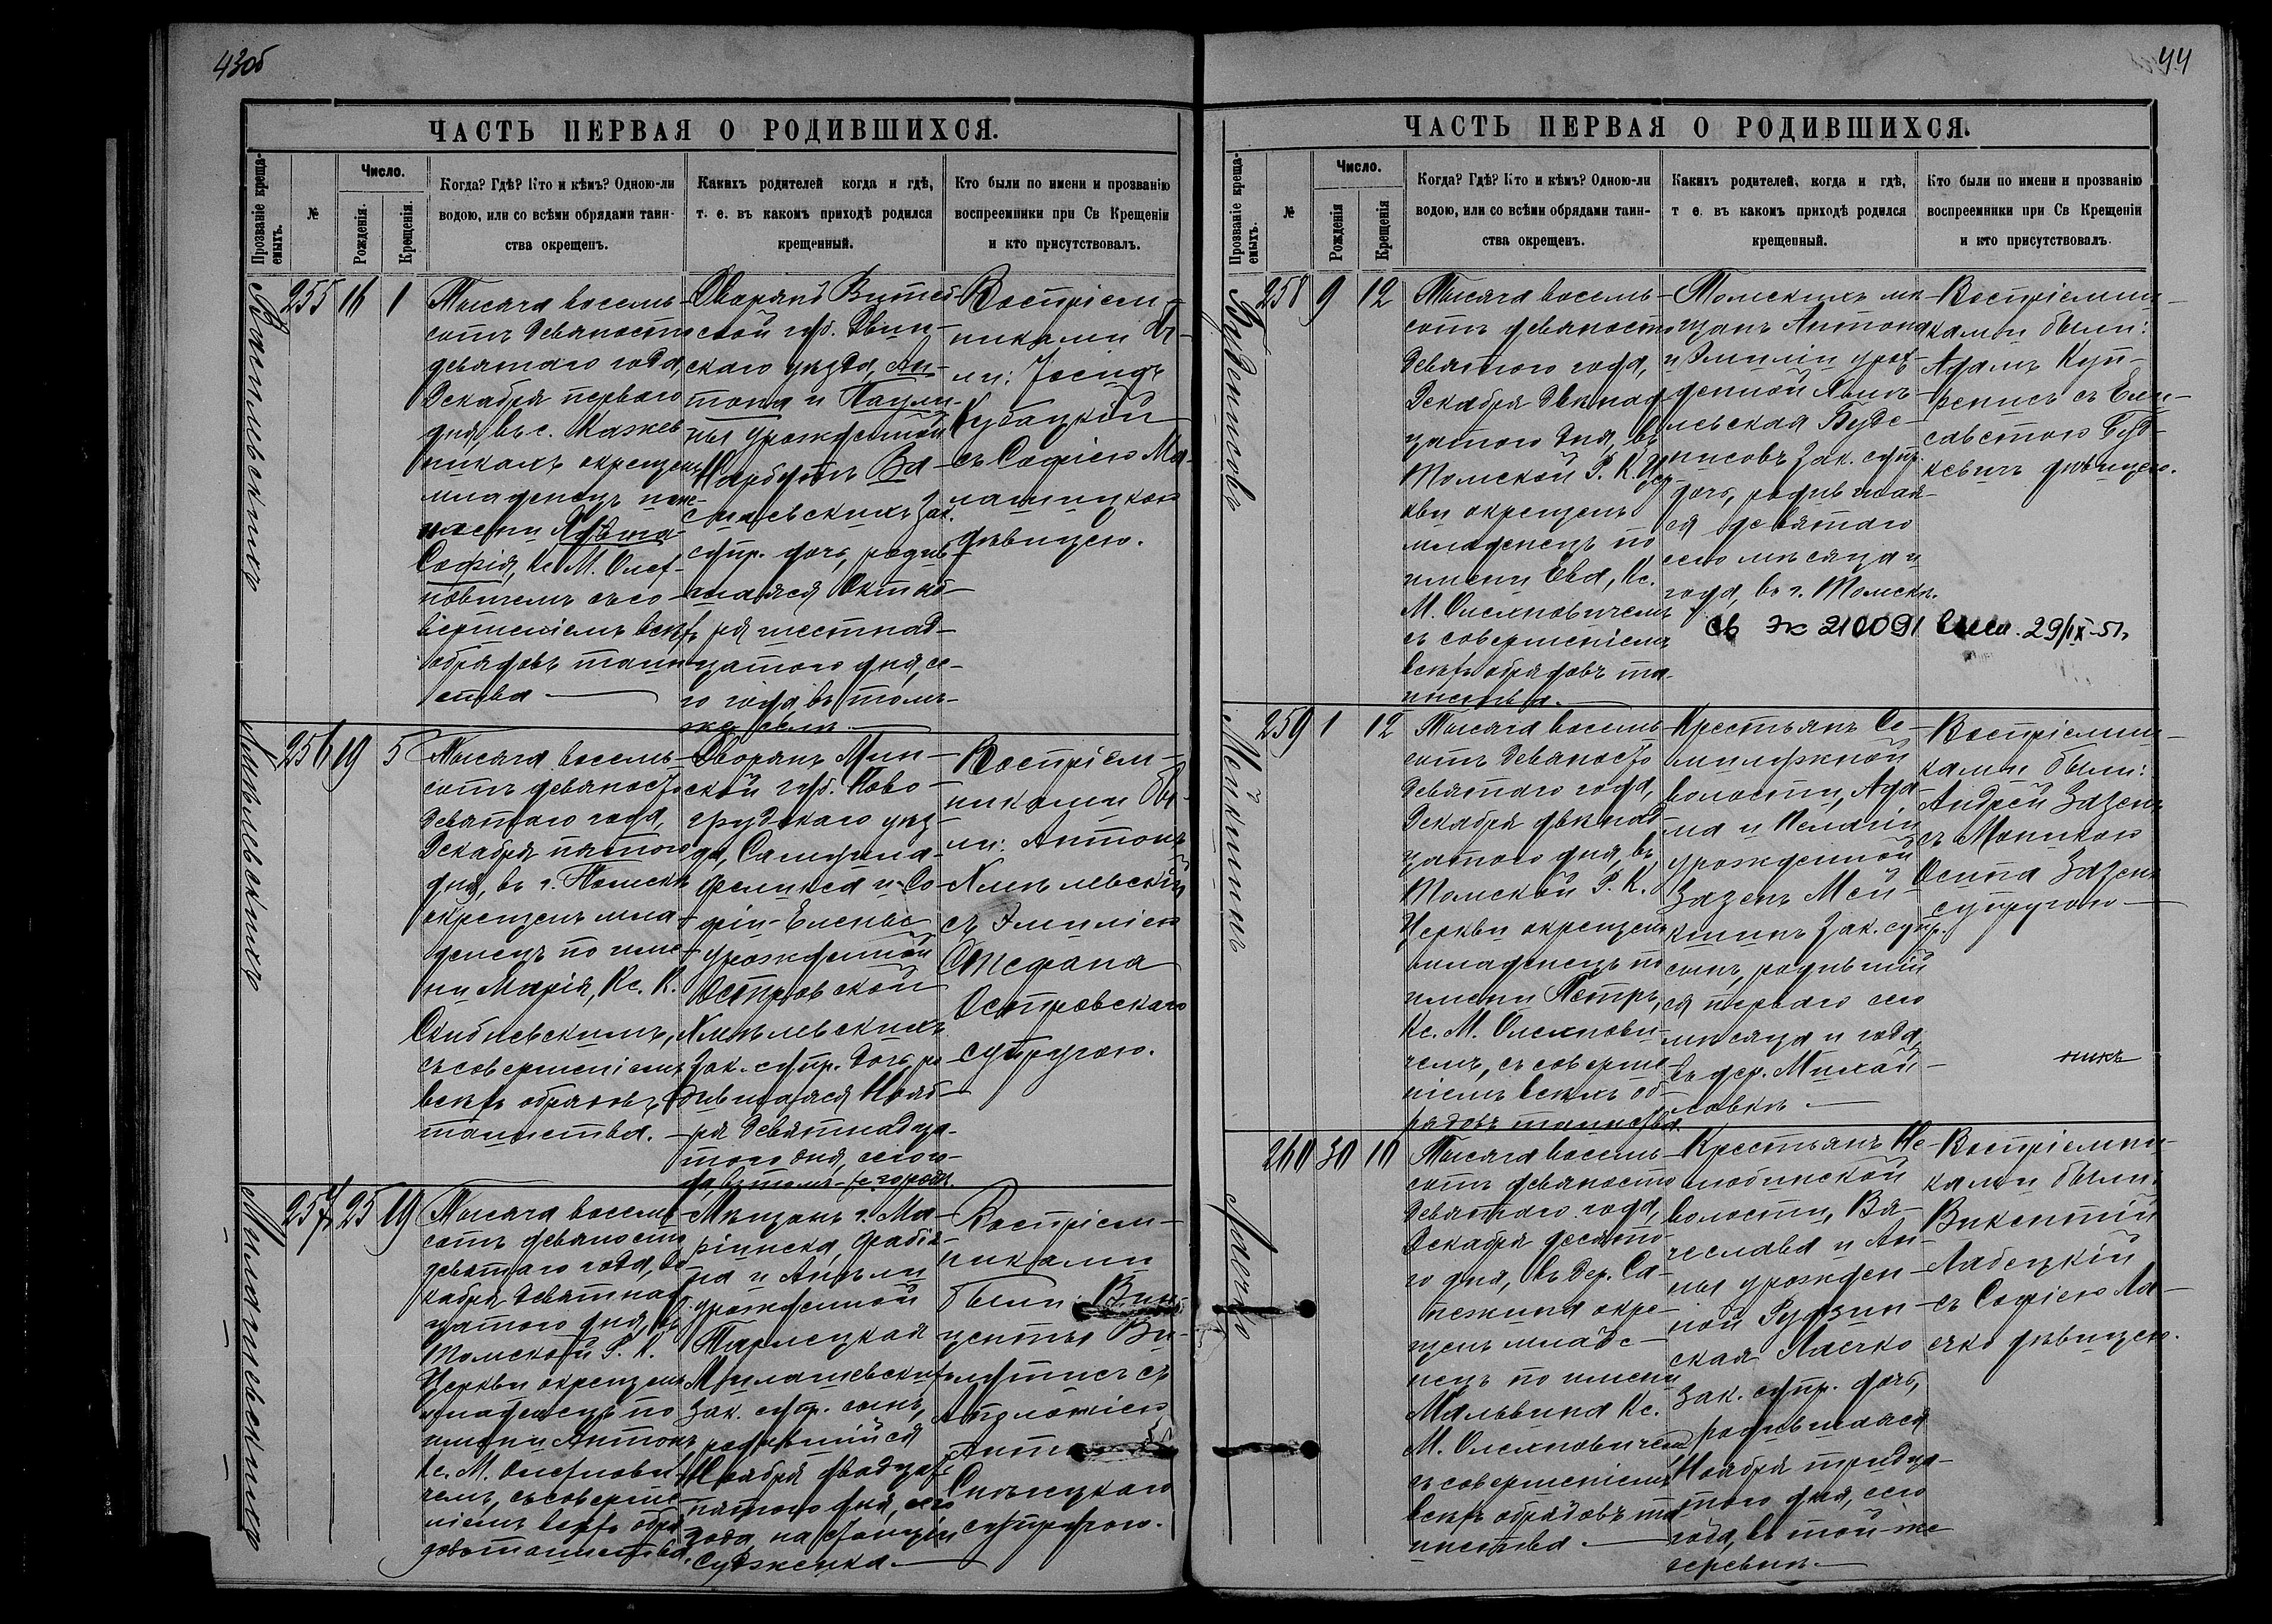 43об
ЧАСТЬ ПЕРВАЯ О РОДИВШИХСЯ.
Прозваніе креща-
емыхъ.
№
Число.
Рожденія.
Крещенія.
Когда? Гдѣ? Кто и кѣмъ? Одною-ли
водою, или со всѣми обрядами таин-
ства окрещенъ.
Какихъ родителей когда и гдѣ,
т. е. въ какомъ приходѣ родился
крещенный.
Кто были по имени и прозванію
воспреемники при Св Крещеніи
и кто присутствовалъ.
255
16
1
Тысяча восемь-
сотъ девяносто
девятаго года,
Декабря перваго
дня, въ с.
окрещенъ
младенецъ по
имени
Софія, Кс. М. Олех-
новичемъ съ со-
вершеніемъ всѣхъ
обрядовъ таин-
ства
Дворянъ Витеб
ской губ. Двин-
скаго уѣзда, Ан-
тона и Паули-
ны урожденной
Нарбутъ
зак.
супр. дочь, родив-
шаяся Октяб-
ря шестнад-
цатого дня, се-
го года въ томъ-
же селѣ.
Воспріем-
никами бы-
ли: Іосифъ
Кубацкій
съ Софіею
дѣвицею.
256
19
5
Хмѣлевскихъ
Тысяча восемь-
сотъ девяносто
девятаго года,
Декабря пятого
дня, въ г. Томскѣ
окрещенъ мла-
денецъ по име-
ни Марія, Кс. К.
съ совершеніемъ
всѣхъ обрядовъ
таинства.
Дворянъ Мин-
ской губ. Ново-
грудскаго уѣз
да,
Феликса и Со
фіи-Елены
урожденной
Островской
Хмѣлевскихъ
зак. супр. дочь, ро
дившаяся Нояб-
ря девятнадца-
того дня, сего го-
да, въ томъ-же городѣ.
Воспріем-
никами бы-
ли: Антонъ
Хмѣлевскій
съ Эмиліею
Стефана
Островскаго
супругою.
257
25
19
Милашевскихъ
Тысяча восемь-
сотъ девяносто
девятаго года, Де
кабря девятнад
цатого дня, въ
Томской Р. К.
Церкви окрещенъ
младенецъ по
имени Антонъ
Кс. М. Олехнови-
чемъ, съ соверше-
ніемъ всѣхъ обря
довъ таинства.
Мѣщанъ г. Ма-
ріинска, Фабіа-
на и Анѣли
урожденной
Милашевскихъ
зак. супр. сынъ,
родившійся
Ноября двадцать
пятого дня, сего
года, на станціи
Судженка.
Воспріем-
никами
были:
съ
Аполоніею
супругою.
44
ЧАСТЬ ПЕРВАЯ О РОДИВШИХСЯ.
Прозваніе креща-
емыхъ.
№
Число.
Рожденія
Крещенія
Когда? Гдѣ? Кто и кѣмъ? Одною-ли
водою, или со всѣми обрядами таин-
ства окрещенъ.
Какихъ родителей, когда и гдѣ,
т е. въ какомъ приходѣ родился
крещенный.
Кто были по имени и прозванію
воспреемники при Св Крещеніи
и кто присутствовалъ.
258
9
12
Буденисовъ
Тысяча восемь-
сотъ девяносто
девятого года,
Декабря двѣнад
цатого дня, въ
Томской Р. К. Цер-
кви окрещенъ
младенецъ по
имени Ева, Кс.
М. Олехновичемъ
съ совершеніемъ
всѣхъ обрядовъ та-
инства.
Томскихъ мѣ
щанъ Антона
и Эмиліи урож-
денной
Буде-
нисовъ зак. супр.
дочь, родившая-
ся девятаго
сего мѣсяца и
года, въ г. Томскѣ.
Воспріемни-
ками были:
Адамъ
съ Ели-
саветою
дѣвицею.
Св ЭК 210091 29/IX-51г
259
1
12
Мейкшинъ
Тысяча восемь-
сотъ девяносто
девятаго года,
Декабря двѣнад
цатого дня, въ
Томской Р. К.
Церкви окрещенъ
младенецъ по
имени Петръ,
Кс. М. Олехнови-
чемъ, съ соверше-
ніемъ всѣхъ об-
рядовъ таинства.
Крестьянъ Се-
милужной
волости, Ада-
ма и Пелагіи
урожденной
Зазенъ Мей-
кшинъ зак. супр.
сынъ, родившій
ся перваго сего
мѣсяца и года,
въ дер. Михай-
ловкѣ.
Воспріемни-
ками были:
Андрей Зазенъ
съ Моникою
Осипа Зазенъ
супругою
260
30
10
Лаечко
Тысяча восемь-
сотъ девяносто
девятаго года,
Декабря десято-
го дня, въ дер.
окре-
щенъ младе-
нецъ по имени
Мальвина Кс.
М. Олехновичемъ
съ совершеніемъ
всѣхъ обрядовъ та
инства.
Крестьянъ Не-
любинской
волости, Вя-
чеслава и Ан-
ны урожден-
ной Рудзин-
ская Лаечко
зак. супр. дочь,
родившаяся
Ноября тридца-
того дня, сего
года, въ той-же
деревнѣ.
Воспріемни-
ками были:
Викентій
Лабецкій
съ Софіею Ла-
ечко дѣвицею.